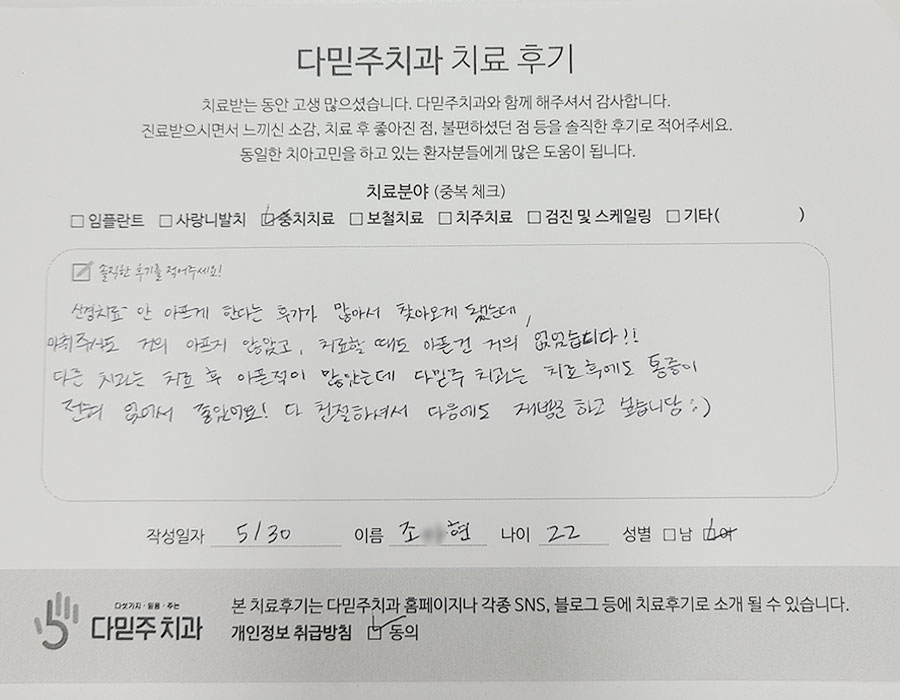 다믿주치과 치료 후기
치료받는 동안 고생 많으셨습니다. 다믿주치과와 함께 해주셔서 감사합니다.
진료받으시면서 느끼신 소감, 치료 후 좋아진 점, 불편하셨던 점 등을 솔직한 후기로 적어주세요.
동일한 치아고민을 하고 있는 환자분들에게 많은 도움이 됩니다.
치료분야 (중복 체크)
□ 임플란트 □ 사랑니발치 ☑ 충치치료 □ 보철치료 □ 치주치료 □ 검진 및 스케일링 □ 기타( )
솔직한 후기를 적어주세요!
신경치료 안 아프게 한다는 후기가 많아서 찾아오게 됐는데,
마취주사도 거의 아프지 않았고, 치료할 때도 아픈건 거의 없었습니다!!
다른 치과는 치료 후 아픈적이 많았는데 다믿주 치과는 치료후에도 통증이
전혀 없어서 좋았어요! 다 친절하셔서 다음에도 재방문 하고 싶습니당 :)
작성일자 5/30 이름 조 현 나이 22 성별 □ 남 ☑ 여
다섯가지·믿음·주는
다믿주치과
본 치료후기는 다믿주치과 홈페이지나 각종 SNS, 블로그 등에 치료후기로 소개 될 수 있습니다.
개인정보 취급방침 ☑ 동의